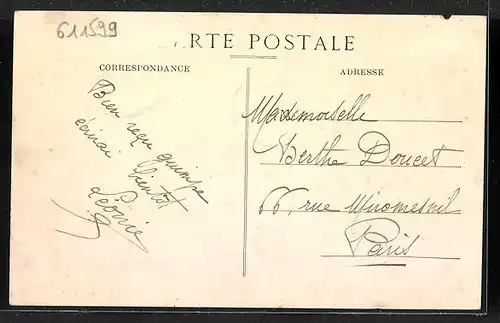 611599
RTE POSTALE
CORRESPONDANCE
Bien reçu guimpe
écrirai bientôt
Léonie
ADRESSE
Mademoiselle
Berthe Doucet
66, rue Miromesnil
Paris